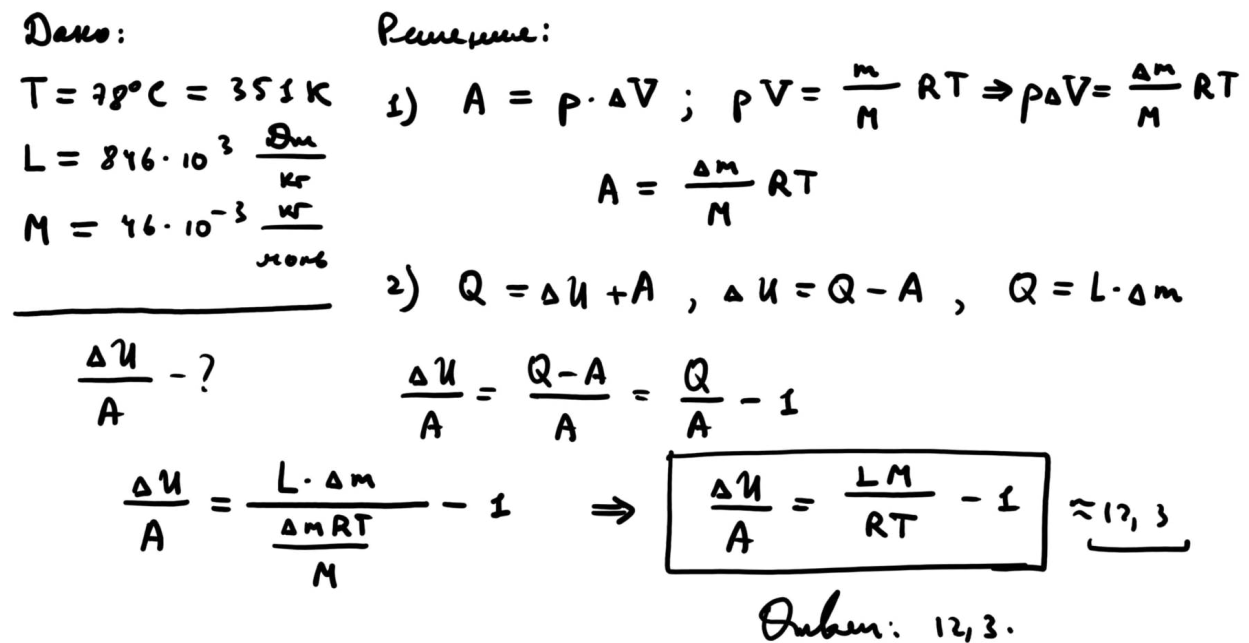 Дано:
T = 78°C = 351 К
L = 846·10³ Дж/кг
M = 46·10⁻³ кг/моль
ΔU/A - ?
Решение:
1) A = p·ΔV ; pV = m/M RT ⇒ pΔV = Δm/M RT
A = Δm/M RT
2) Q = ΔU + A , ΔU = Q - A , Q = L·Δm
ΔU/A = (Q - A)/A = Q/A - 1
ΔU/A = L·Δm/(ΔmRT/M) - 1 ⇒ ΔU/A = LM/RT - 1 ≈ 12,3
Ответ: 12,3.